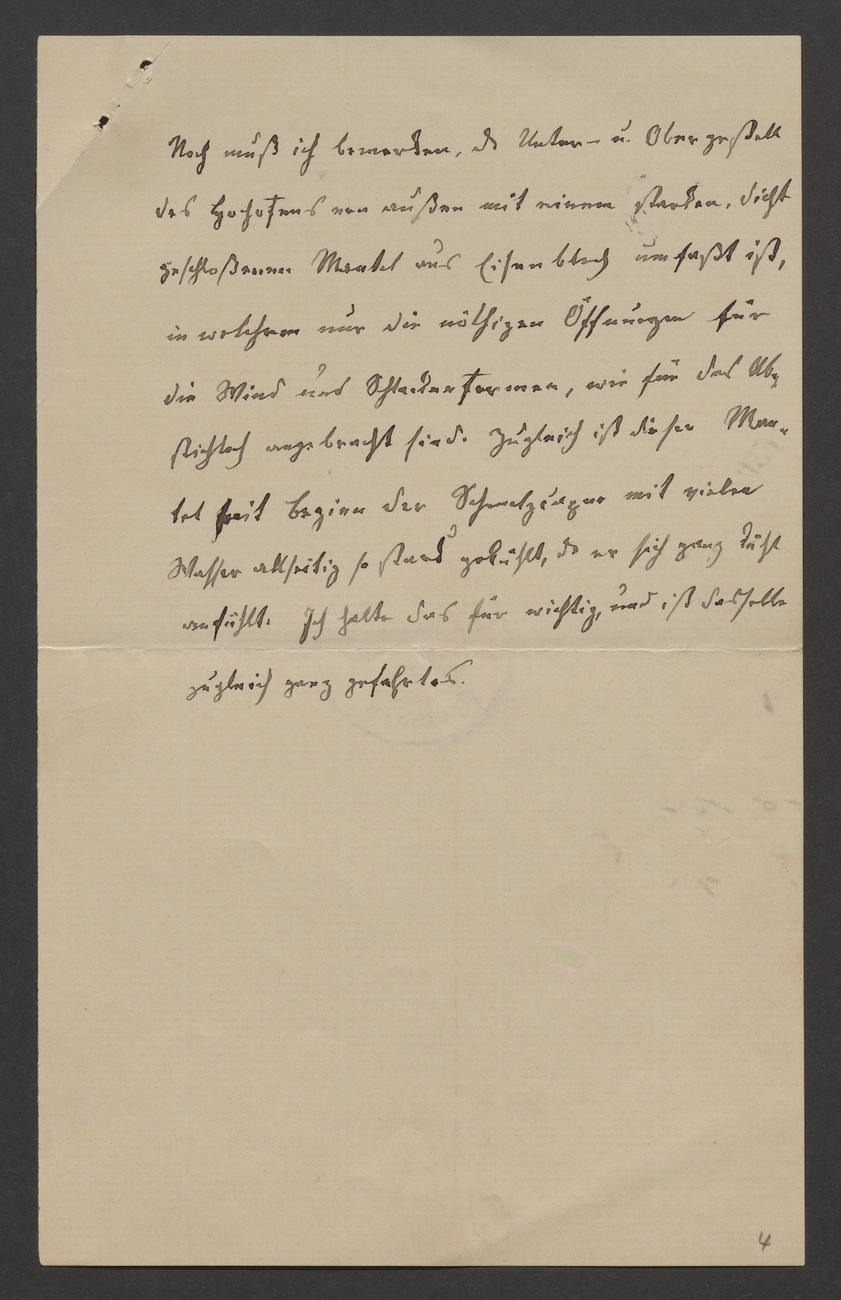 Noch muß ich bemerken, ds Unter- u. Obergestell
des Hochofens von außen mit einem starken, dicht
geschloßenen Mantel aus Eisenblech umfaßt ist,
in welchem nur die nöthigen Öffnungen für
die Wind und Schlackenformen, wie für das Ab-
stichloch angebracht sind. Zugleich ist dieser Man-
tel seit Beginn der mit vielen
Wasser allseitig so stark gekühlt, ds er sich ganz kühl
anfühlt. Ich halte das für wichtig, und ist dasselbe
zugleich ganz gefahrlos.
4